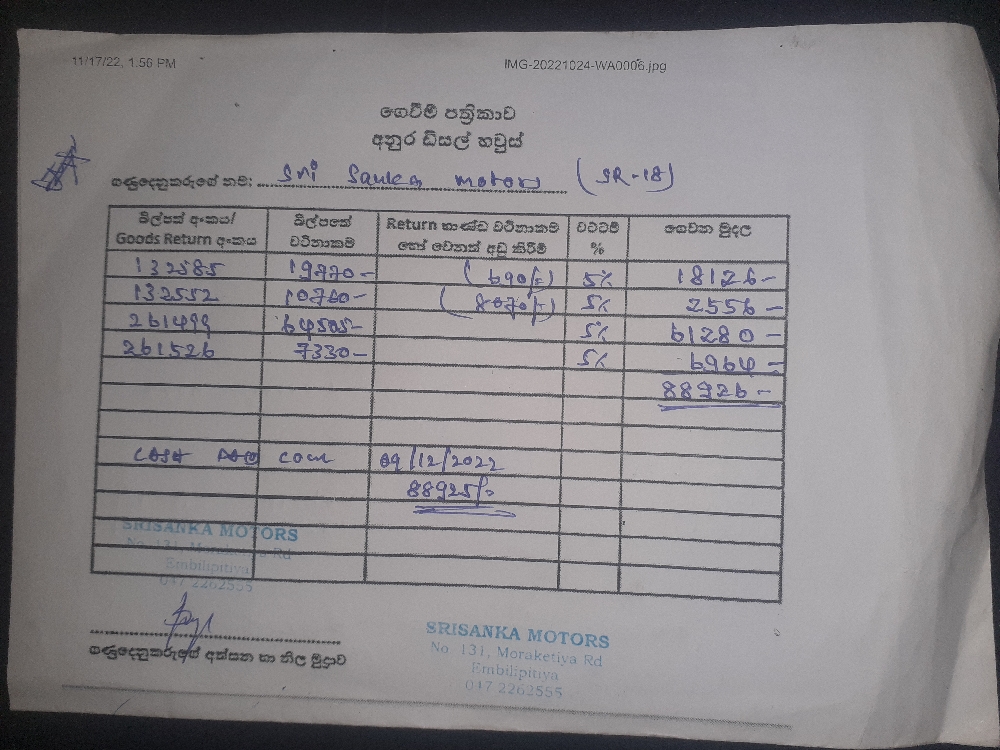 11/17/22, 1:56 PM IMG-20221024-WA0006.jpg
ගෙවීම් පත්‍රිකාව
අනුර ඩීසල් හවුස්
ගණුදෙනුකරුගේ නම: Sri Sanka motors (SR-18)
බිල්පත් අංකය/ Goods Return අංකය බිල්පතේ වටිනාකම Return භාණ්ඩ වටිනාකම හෝ වෙනත් අඩු කිරීම් වට්ටම් % ගෙවන මුදල
132585 19770- (690/-) 5% 18126-
132552 10760- (8070/-) 5% 2556-
261499 64505- 5% 61280-
261526 7330- 5% 6964-
88926-
09/12/2022
88925/-
SRISANKA MOTORS
No. 131, Moraketiya Rd
Embilipitiya
047 2262555
ගණුදෙනුකරුගේ අත්සන හා නිල මුද්‍රාව
SRISANKA MOTORS
No. 131, Moraketiya Rd
Embilipitiya
047 2262555